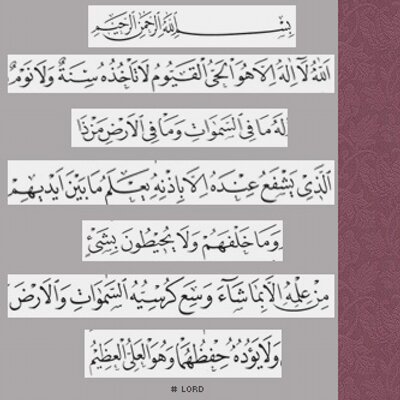 بِسْمِ اللَّهِ الرَّحْمَنِ الرَّحِيمِ
اَللّٰهُ لَٓا اِلٰهَ اِلَّا هُوَ الْحَيُّ الْقَيُّومُ لَا تَأْخُذُهُ سِنَةٌ وَلَا نَوْمٌ
لَهُ مَا فِي السَّمٰوَاتِ وَمَا فِي الْاَرْضِ مَنْ ذَا
الَّذِي يَشْفَعُ عِنْدَهُ اِلَّا بِاِذْنِهِ يَعْلَمُ مَا بَيْنَ اَيْدِيهِمْ
وَمَا خَلْفَهُمْ وَلَا يُحِيطُونَ بِشَيْءٍ
مِنْ عِلْمِهِ اِلَّا بِمَا شَاءَ وَسِعَ كُرْسِيُّهُ السَّمٰوَاتِ وَالْاَرْضَ
وَلَا يَؤُدُهُ حِفْظُهُمَا وَهُوَ الْعَلِيُّ الْعَظِيمُ
# LORD